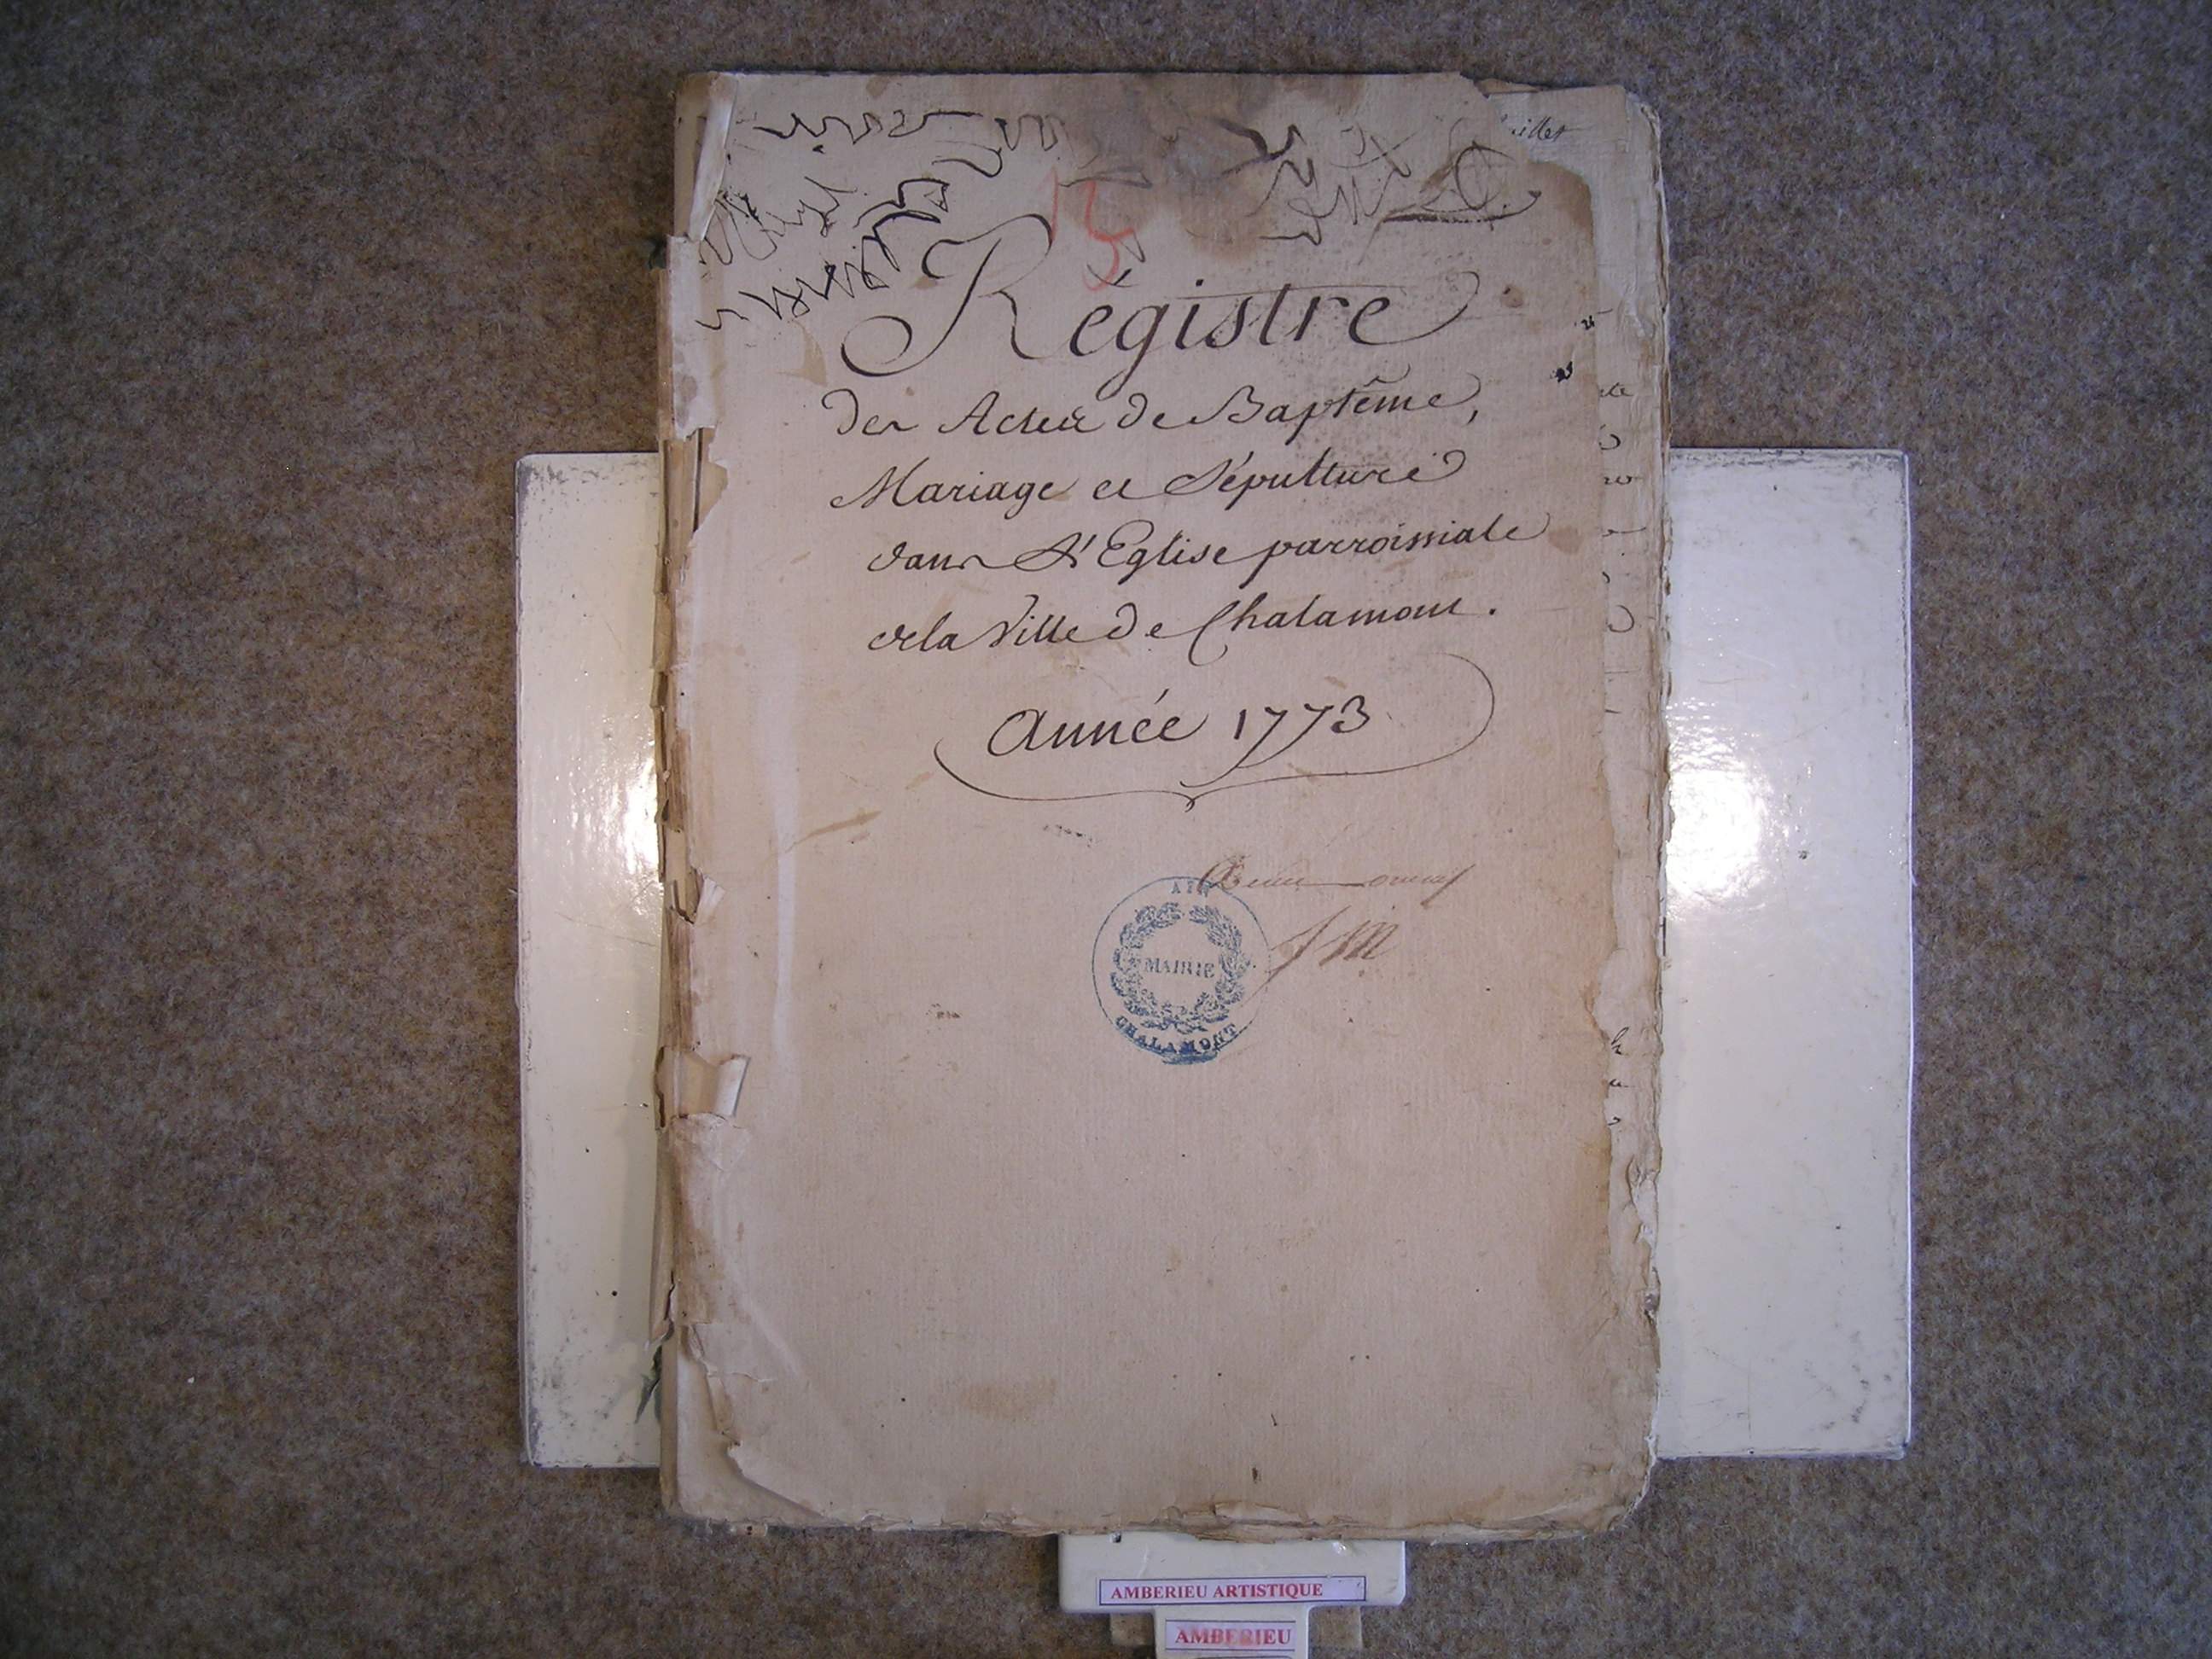 Régistre
des Actes de Baptême,
Mariage et Sépulture
dans L'Eglise parroissiale
dela Ville de Chalamont.
année 1773
AIN
MAIRIE
CHALAMONT
AMBERIEU ARTISTIQUE
AMBERIEU